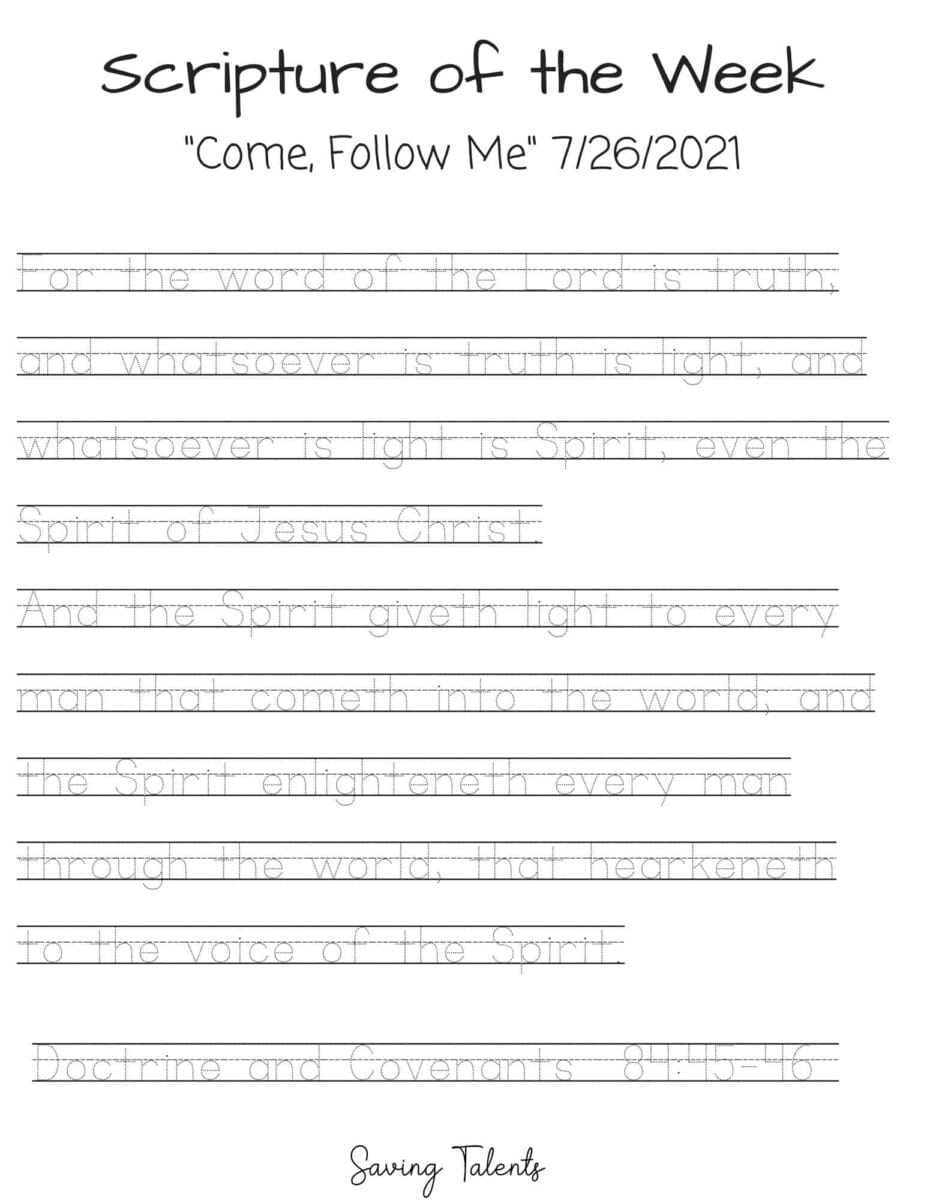 Scripture of the Week
"Come, Follow Me" 7/26/2021
For the word of the Lord is truth,
and whatsoever is truth is light, and
whatsoever is light is Spirit, even the
Spirit of Jesus Christ.
And the Spirit giveth light to every
man that cometh into the world; and
the Spirit enlighteneth every man
through the world, that hearkeneth
to the voice of the Spirit.
Doctrine and Covenants 84:45-46
Saving Talents